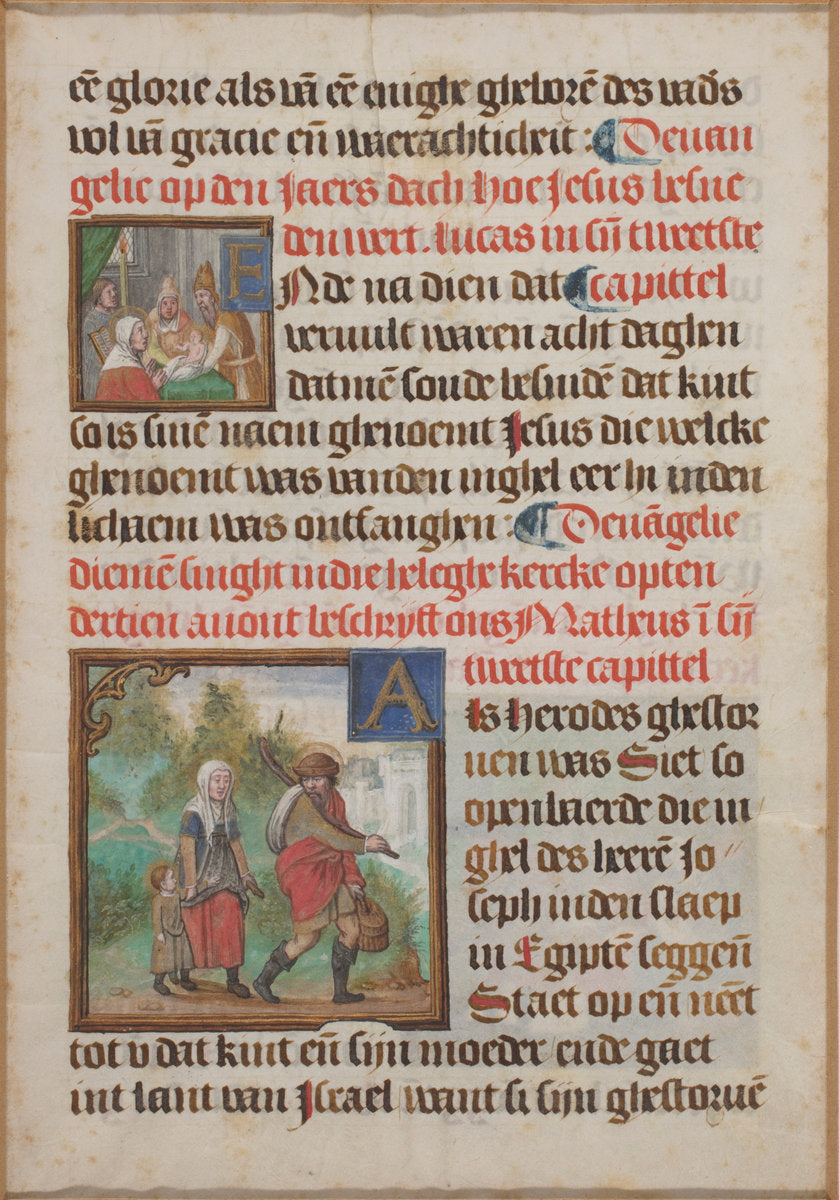 eē glorie als vā eē enighe gheborē des vad's
vol vā gracie eñ waerachticheit : Devan
gelie op den Jaers dach hoe Jesus besne
den wert . Lucas in sijn tweetste
E
Nde na dien dat capittel
vervult waren acht daghen
datmē soude besnidē dat kint
so is sinē naem ghenoemt Jesus die welcke
ghenoemt was vanden inghel eer hi inden
lichaem was ontfanghen : Devāgelie
diemē singht in die heleghe kercke opten
dertien avont beschrijft ons Matheus ī sijn
tweetste capittel
A
ls herodes ghestor
uen was Siet so
openbaerde die in
ghel des heerē Jo
seph inden slaep
in Egiptē seggeñ
Staet op eñ neēt
tot v dat kint eñ sijn moeder ende gaet
int lant van Israel want si sijn ghestoruē